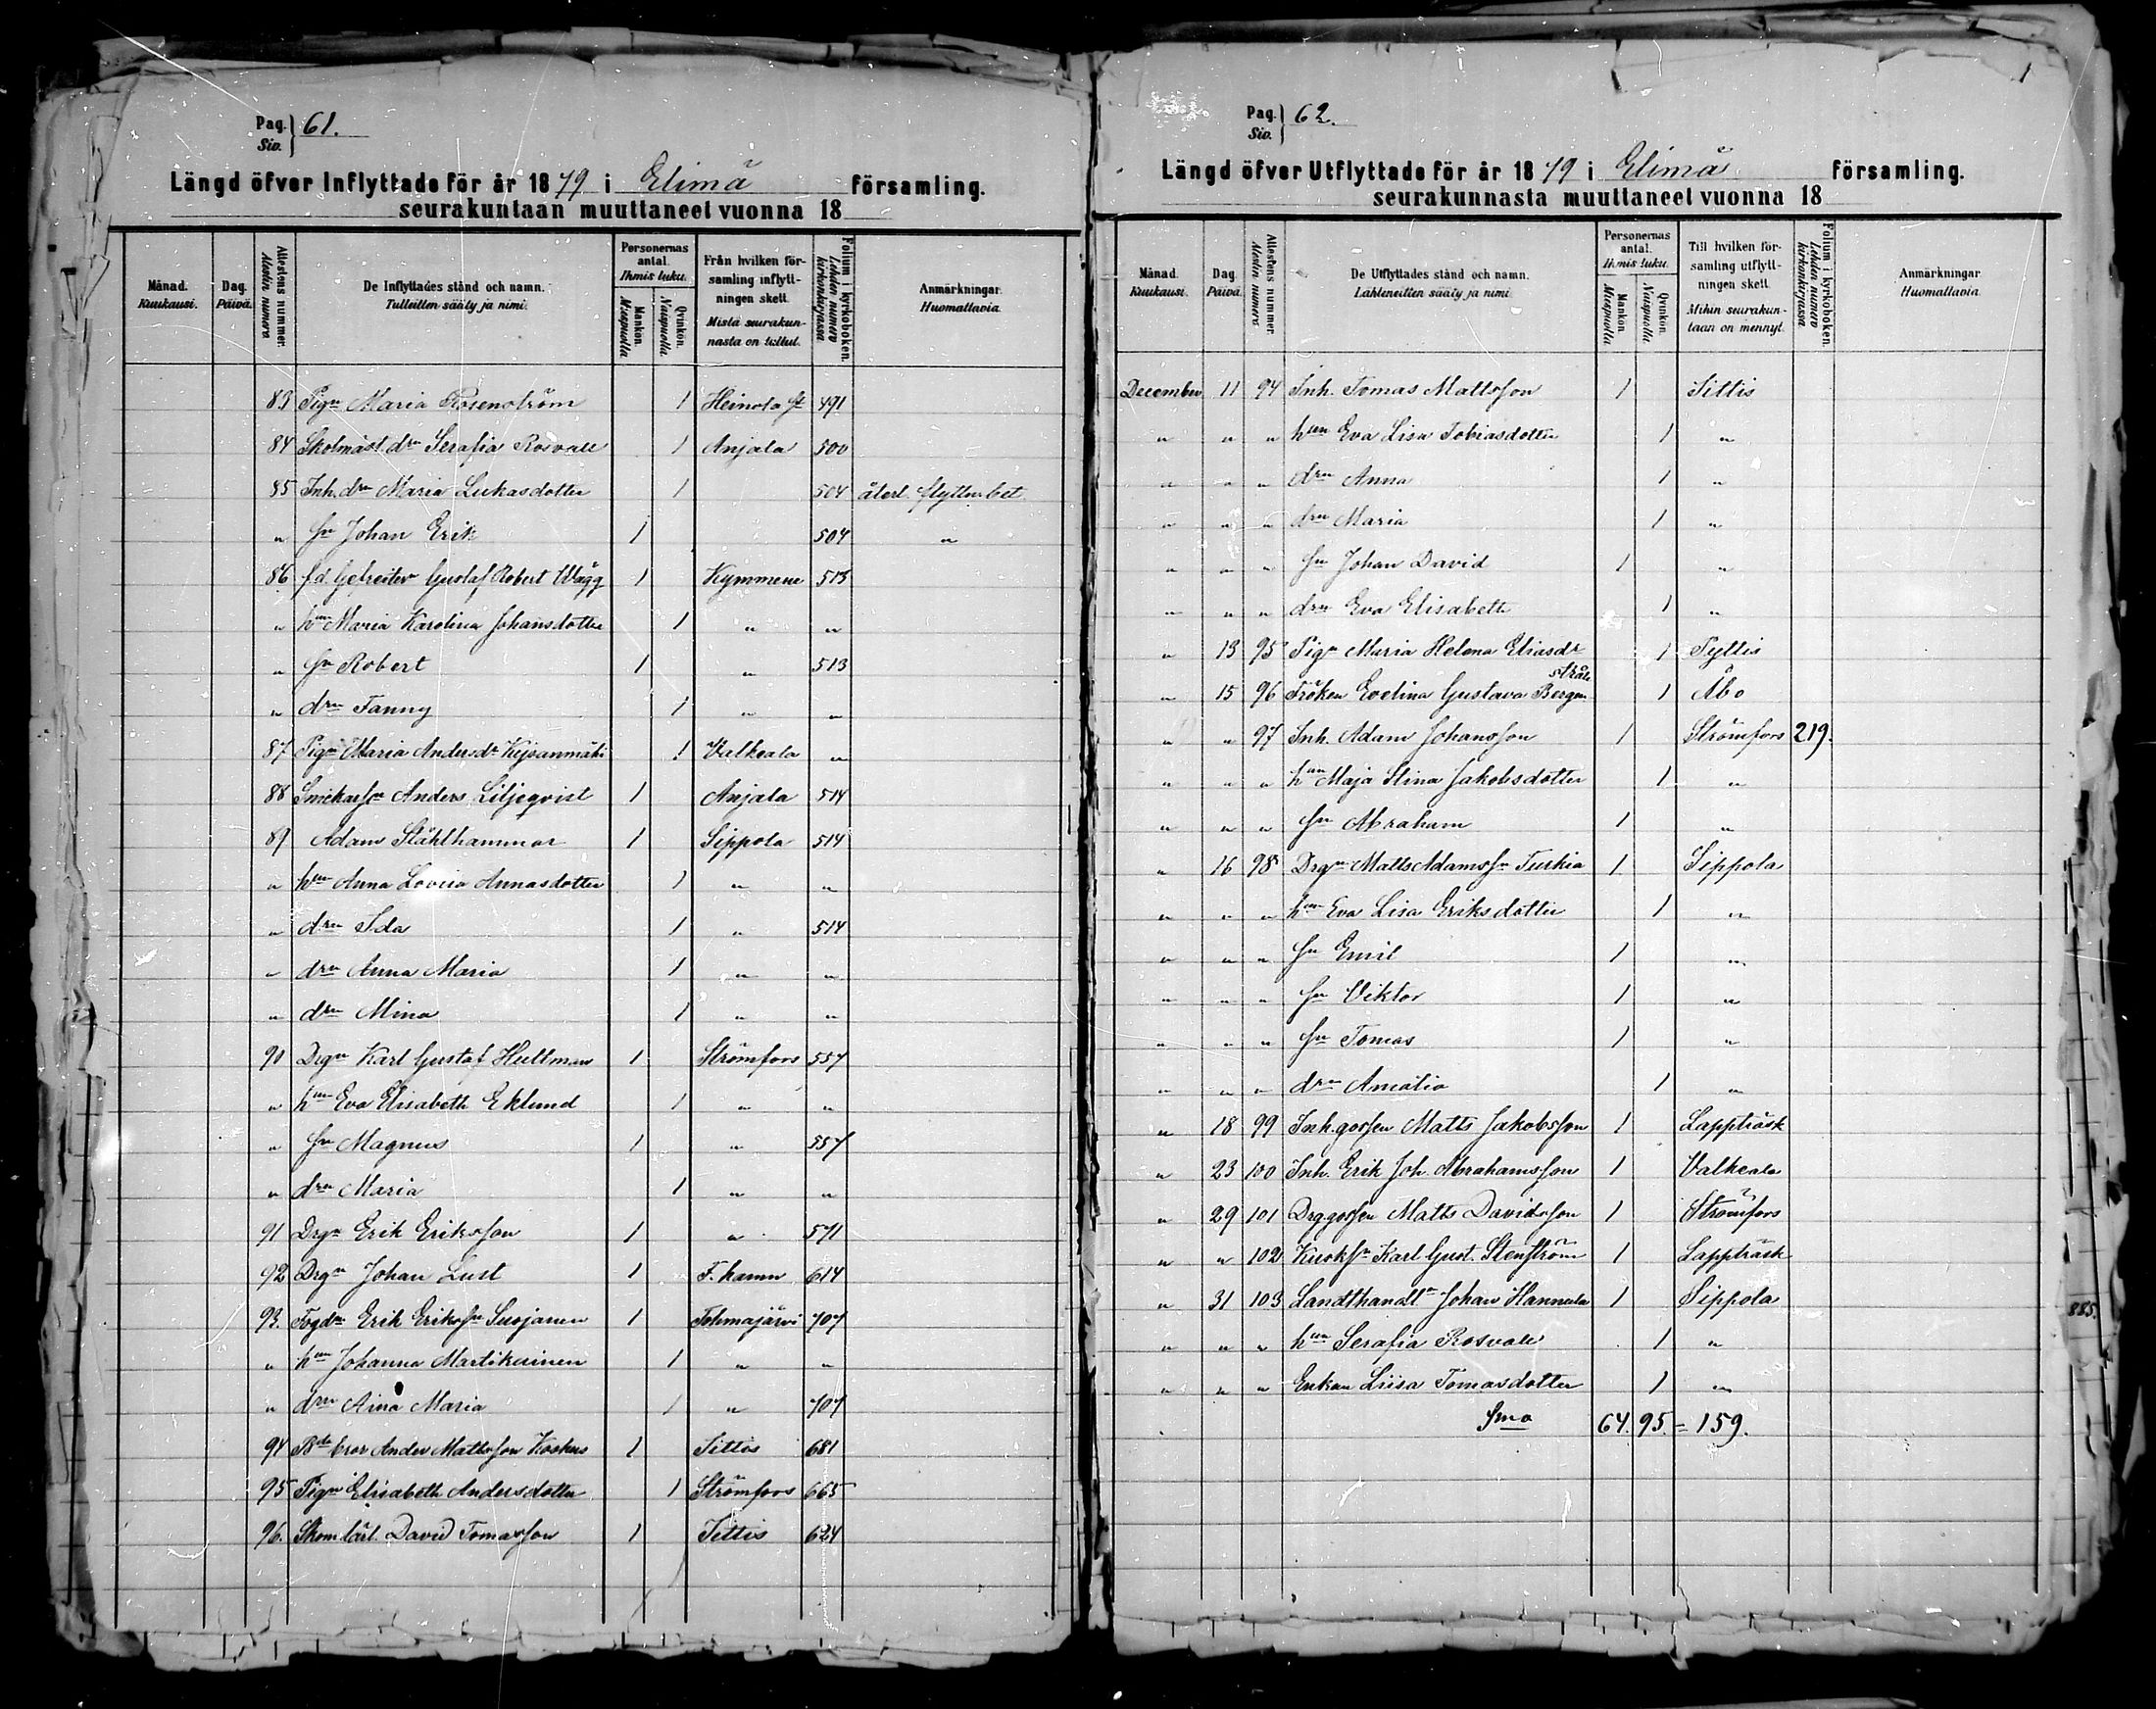 Pag. 61.
Siv.
Längd öfver Inflyttade för år 1879 i Elimä församling.
seurakuntaan muuttaneet vuonna 18
Månad. Kuukausi. Dag. Päivä. Attestens nummer. Alestin numero. De Inflyttades stånd och namn. Tulleitten sääty ja nimi. Personernas antal. Ihmis luku. Mankön. Miespuolia Qvinkön. Naispuolia Från hvilken församling inflyttningen skett. Mistä seurakunnasta on tullut. Folium i kyrkoboken. Lehden numero kirkonkirjassa Anmärkningar. Huomattavia
83 Pign Maria Rosenström 1 Heinola st 491
84 Skolmäst. drn Serafia Rosvall 1 Anjala 500
85 Inh. drn Maria Lukasdotter 1 504 återl. flyttn. bet.
" sn Johan Erik 1 504 "
86. f.d. Gefreiter Gustaf Robert Wägg 1 Kymmene 513
" hun Maria Karolina Johansdotter 1 " "
" sn Robert 1 " 513
" drn Fanny 1 " "
87 Pign Maria Andersdr Kijsanmäki 1 Valkeala "
88 Snickarsn Anders Liljeqvist 1 Anjala 514
89 Adam Ståhlhammar 1 Sippola 514
" hun Anna Lovisa Annasdotter 1 " "
" drn Ida 1 " 514
" drn Anna Maria 1 " "
" drn Mina 1 " "
90 Drgn Karl Gustaf Hultman 1 Strömfors 557
" hun Eva Elisabeth Eklund 1 " "
" sn Magnus 1 " 557
" drn Maria 1 " "
91 Drgn Erik Eriksson 1 " 571
92 Drgn Johan Lust 1 F.hamn 614
93. Fogdn Erik Eriksson Susjanen 1 Tohmajärvi 707
" hun Johanna Martikainen 1 " "
" drn Aina Maria 1 " 707
94 Bde bror Anders Mattsson Koskus 1 Iittis 681
95 Pign Elisabeth Andersdotter 1 Strömfors 665
96. Skom. lärl. David Tomasson 1 Iittis 624
Pag. 62.
Siv.
Längd öfver Utflyttade för år 1879 i Elimä församling.
seurakunnasta muuttaneet vuonna 18
Månad. Kuukausi. Dag. Päivä. Attestens nummer. Alestin numero. De Utflyttades stånd och namn. Lähteneitten sääty ja nimi. Personernas antal. Ihmis luku. Mankön. Miespuolia Qvinkön. Naispuolia. Till hvilken församling utflyttningen skett. Mihin seurakuntaan on mennyt. Folium i kyrkoboken. Lehden numero kirkonkirjassa Anmärkningar Huomattavia
December 11 94 Inh. Tomas Mattsson 1 Iittis
" " " hun Eva Lisa Tobiasdotter 1 "
" " " drn Anna 1 "
" " " drn Maria 1 "
" " " sn Johan David 1 "
" " " drn Eva Elisabeth 1 "
" 13 95 Pign Maria Helena Eliasdr 1 Pyttis
" 15 96 Fröken Evelina Gustava Bergenstråle 1 Åbo
" " 97 Inh. Adam Johansson 1 Strömfors 219.
" " " hun Maja Stina Jakobsdotter 1 "
" " " sn Abraham 1 "
" 16 98 Drgn Matts Adamssn Turkia 1 Sippola
" " " hun Eva Lisa Eriksdotter 1 "
" " " sn Emil 1 "
" " " sn Viktor 1 "
" " " sn Tomas 1 "
" " " drn Amalia 1 "
" 18 99 Inh. gossen Matts Jakobsson 1 Lappträsk
" 23 100 Inh. Erik Joh. Abrahamsson 1 Valkeala
" 29 101 Drggossen Matts Davidsson 1 Strömfors
" " 102 Kusksn Karl Gust. Stenström 1 Lappträsk
" 31 103 Landthandln Johan Hannula 1 Sippola
" " " hun Serafia Rosvall 1 "
" " " Enkan Liisa Tomasdotter 1 "
Sma 64. 95. = 159.
885.